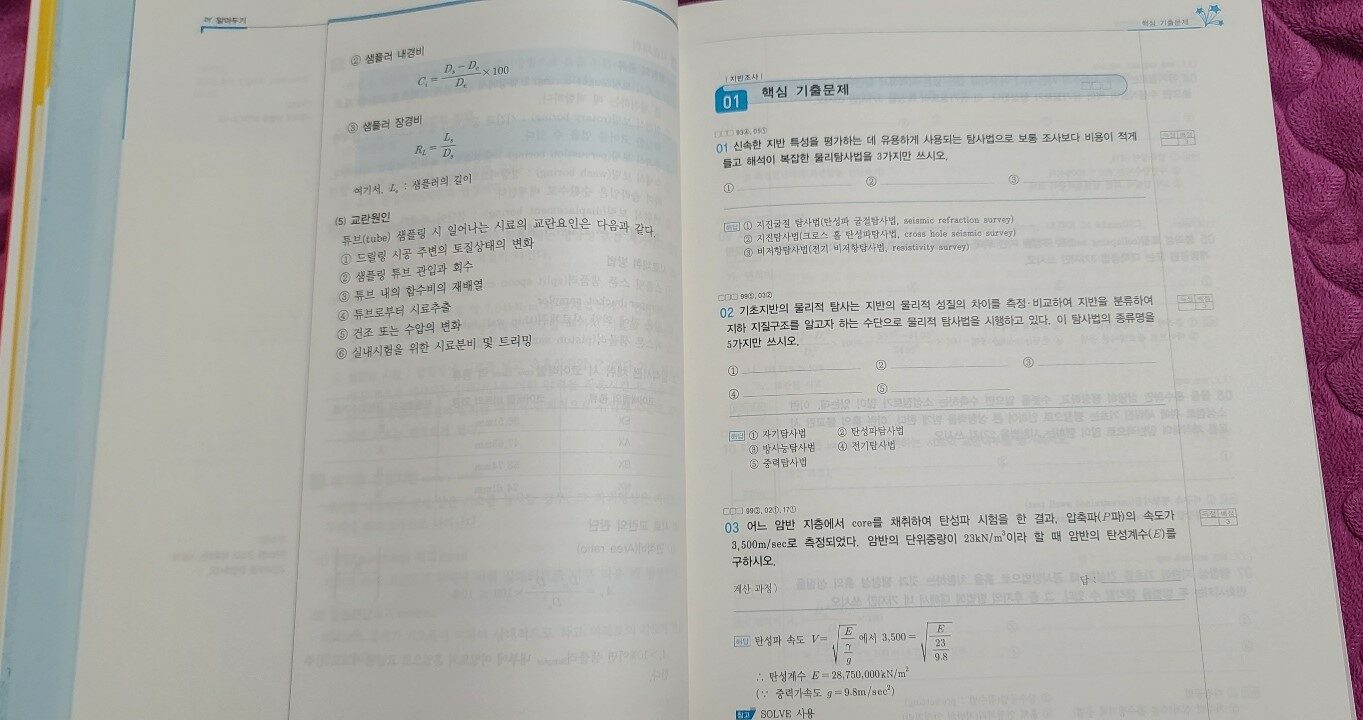 알아두기
② 샘플러 내경비
C_i = (D_s − D_e)/D_e × 100
③ 샘플러 장경비
R_L = L_s/D_s
여기서, L_s : 샘플러의 길이
(5) 교란원인
튜브(tube) 샘플링 시 일어나는 시료의 교란요인은 다음과 같다.
① 드릴링 시공 주변의 토질상태의 변화
② 샘플링 튜브 관입과 회수
③ 튜브 내의 함수비의 재배열
④ 튜브로부터 시료추출
⑤ 건조 또는 수압의 변화
⑥ 실내시험을 위한 시료분비 및 트리밍
핵심 기출문제
| 지반조사 |
01 핵심 기출문제
□□□ 93④, 05①
01 신속한 지반 특성을 평가하는 데 유용하게 사용되는 탐사법으로 보통 조사보다 비용이 적게
들고 해석이 복잡한 물리탐사법을 3가지만 쓰시오.
득점 배점
3
① ② ③
해답 ① 지진굴절 탐사법(탄성파 굴절탐사법, seismic refraction survey)
② 지진탐사법(크로스 홀 탄성파탐사법, cross hole seismic survey)
③ 비저항탐사법(전기 비저항탐사법, resistivity survey)
□□□ 99⑤, 03②
02 기초지반의 물리적 탐사는 지반의 물리적 성질의 차이를 측정·비교하여 지반을 분류하여
지하 지질구조를 알고자 하는 수단으로 물리적 탐사법을 시행하고 있다. 이 탐사법의 종류명을
5가지만 쓰시오.
득점 배점
① ② ③
④ ⑤
해답 ① 자기탐사법 ② 탄성파탐사법
③ 방사능탐사법 ④ 전기탐사법
⑤ 중력탐사법
□□□ 99②, 02①, 17①
03 어느 암반 지층에서 core를 채취하여 탄성파 시험을 한 결과, 압축파(P파)의 속도가
3,500m/sec로 측정되었다. 암반의 단위중량이 23kN/m³이라 할 때 암반의 탄성계수(E)를
구하시오.
득점 배점
3
계산 과정) 답 :
해답 탄성파 속도 V = √(E/(γ/g)) 에서 3,500 = √(E/(23/9.8))
∴ 탄성계수 E = 28,750,000kN/m²
(∵ 중력가속도 g = 9.8m/sec²)
참고 SOLVE 사용